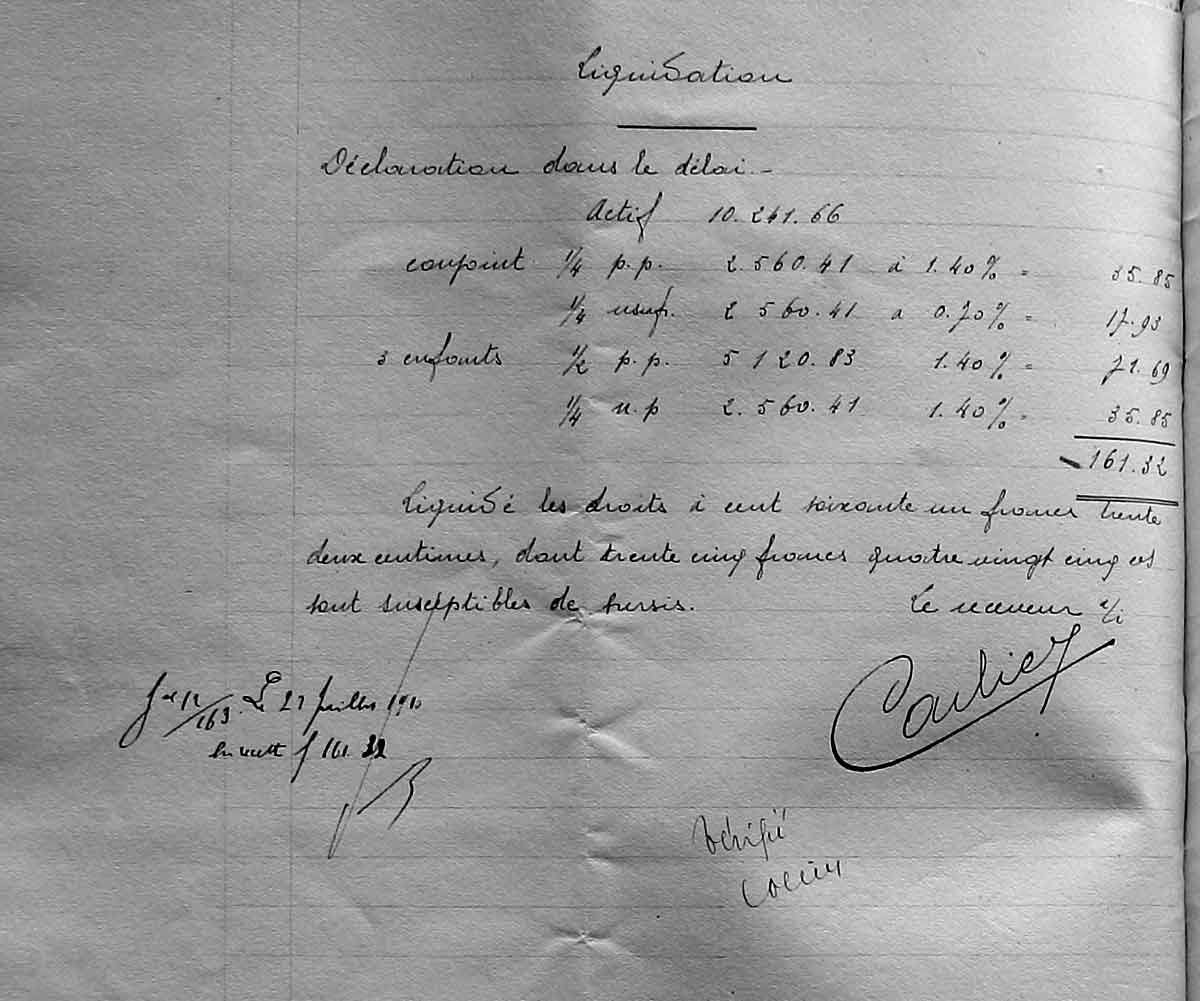 Liquidation
Déclaration dans le délai.-
Actif 10.241.66
conjoint 1/4 p.p. 2.560.41 à 1.40% = 35.85
1/4 usuf. 2 560.41 a 0.70% = 17.93
3 enfants 1/2 p.p. 5 120.83 1.40% = 71.69
1/4 n.p 2.560.41 1.40% = 35.85
161.32
Liquidé les droits à cent soixante un francs trente
deux centimes, dont trente cinq francs quatre vingt cinq cs
sont susceptibles de sursis. Le receveur a/i
Carlier
12/163. Le 21 Juillet
f 161.32
Vérifié